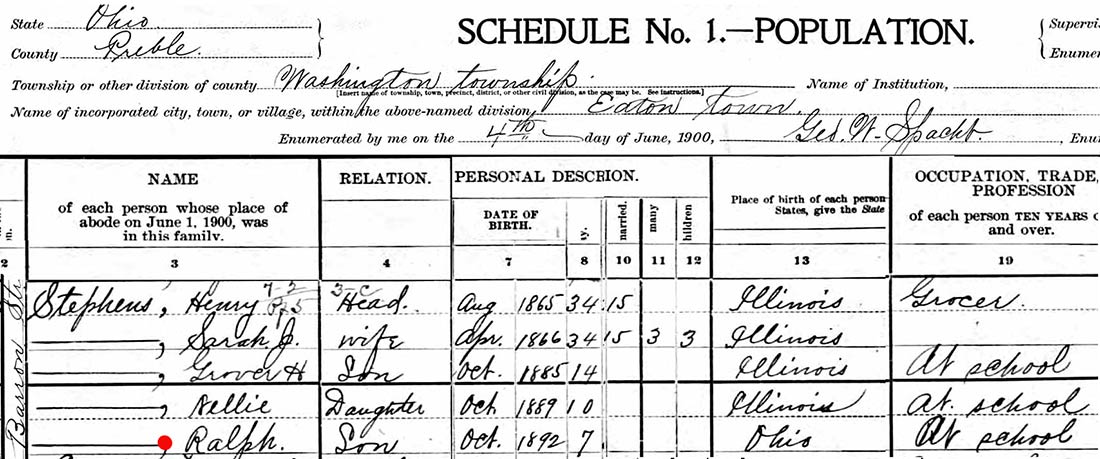 State Ohio
County Preble.
SCHEDULE No. 1.—POPULATION.
Supervis
Enumer
Township or other division of county Washington township. Name of Institution,
[Insert name of township, town, precinct, district, or other civil division, as the case may be. See instructions.]
Name of incorporated city, town, or village, within the above-named division, Eaton town.
Enumerated by me on the 4th day of June, 1900, Geo. W. Spacht. Enu
NAME
of each person whose place of
abode on June 1, 1900, was
in this family.
RELATION.
PERSONAL DESCRION.
DATE OF
BIRTH.
ty.
married.
many
hildren
Place of birth of each person
States, give the State
OCCUPATION, TRADE,
PROFESSION
of each person TEN YEARS o
and over.
2 3 4 7 8 10 11 12 13 19
Barron Str.
Stephens, Henry Head. Aug 1865 34 15 Illinois Grocer.
——, Sarah J. wife Apr. 1866 34 15 3 3 Illinois
——, Grover H Son Oct. 1885 14 Illinois At school
——, Nellie Daughter Oct 1889 10 Illinois At. school
——, Ralph. Son Oct. 1892 7. Ohio At school